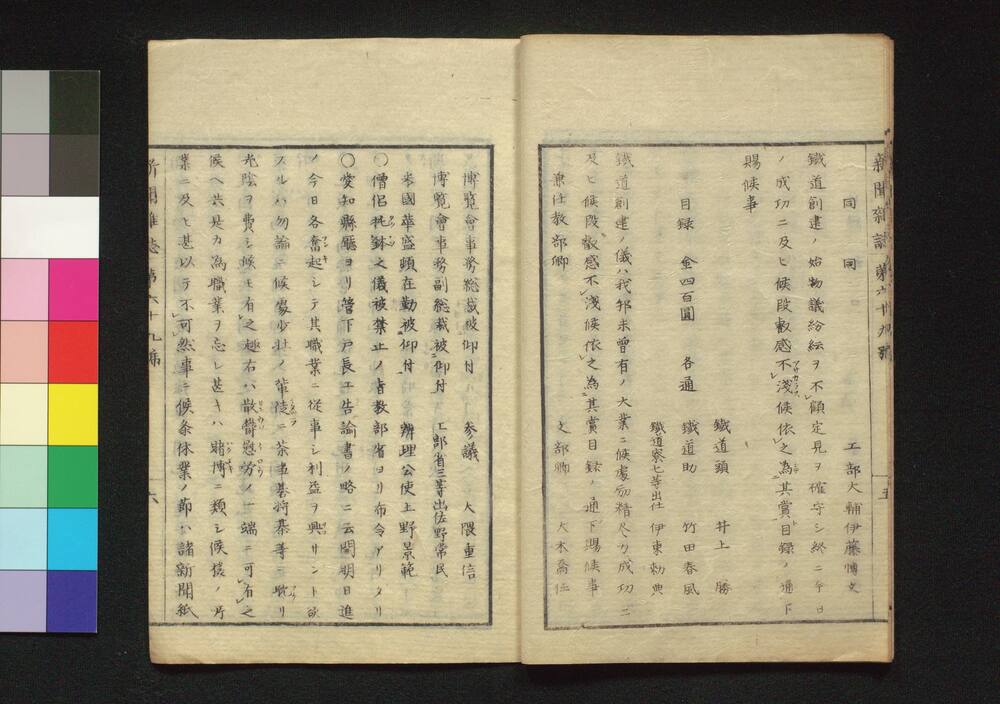 新聞雜誌 第六十九號 五
同 同 工部大輔伊藤博文
鐵道創建ノ始物議紛紜ヲ不顧定見ヲ確守シ終ニ今日
ノ成功ニ及ヒ候段叡感不淺候依之為其賞目録ノ通下
賜候事
鐵道頭 井上 勝
目録 金四百圓 各通 鐵道助 竹田春風
鐵道寮七等出仕 伊東勅典
鐵道創建ノ儀ハ我邦未曽有ノ大業ニ候處勵精尽力成功ニ
及ヒ候段叡感不淺候依之為其賞目録ノ通下賜候事
兼任教部卿 文部卿 大木喬任
博覧會事務総裁被仰付 参議 大隈重信
博覧會事務副総裁被仰付 工部省三等出仕佐野常民
米國華盛頓在勤被仰付 辨理公使上野景範
〇僧侶托鉢之儀被禁止ノ旨教部省ヨリ布令アリタリ
〇愛知縣廳ヨリ管下戸長エ告諭書ノ略ニ云開明日進
ノ今日各奮起シテ其職業ニ從事シ利益ヲ興サント欲
スルハ勿論ニ候處少壮ノ輩徒ニ茶圍碁将棊等ニ耽リ
光陰ヲ費シ候モ有之趣右ハ散鬱慰労ノ一端ニ可有之
候ヘ共是カ為職業ヲ忘レ甚キハ賭博ニ類シ候様ノ所
業ニ及ヒ甚以テ不可然事ニ候条休業ノ節ハ諸新聞紙
新聞雜誌 第六十九號 六